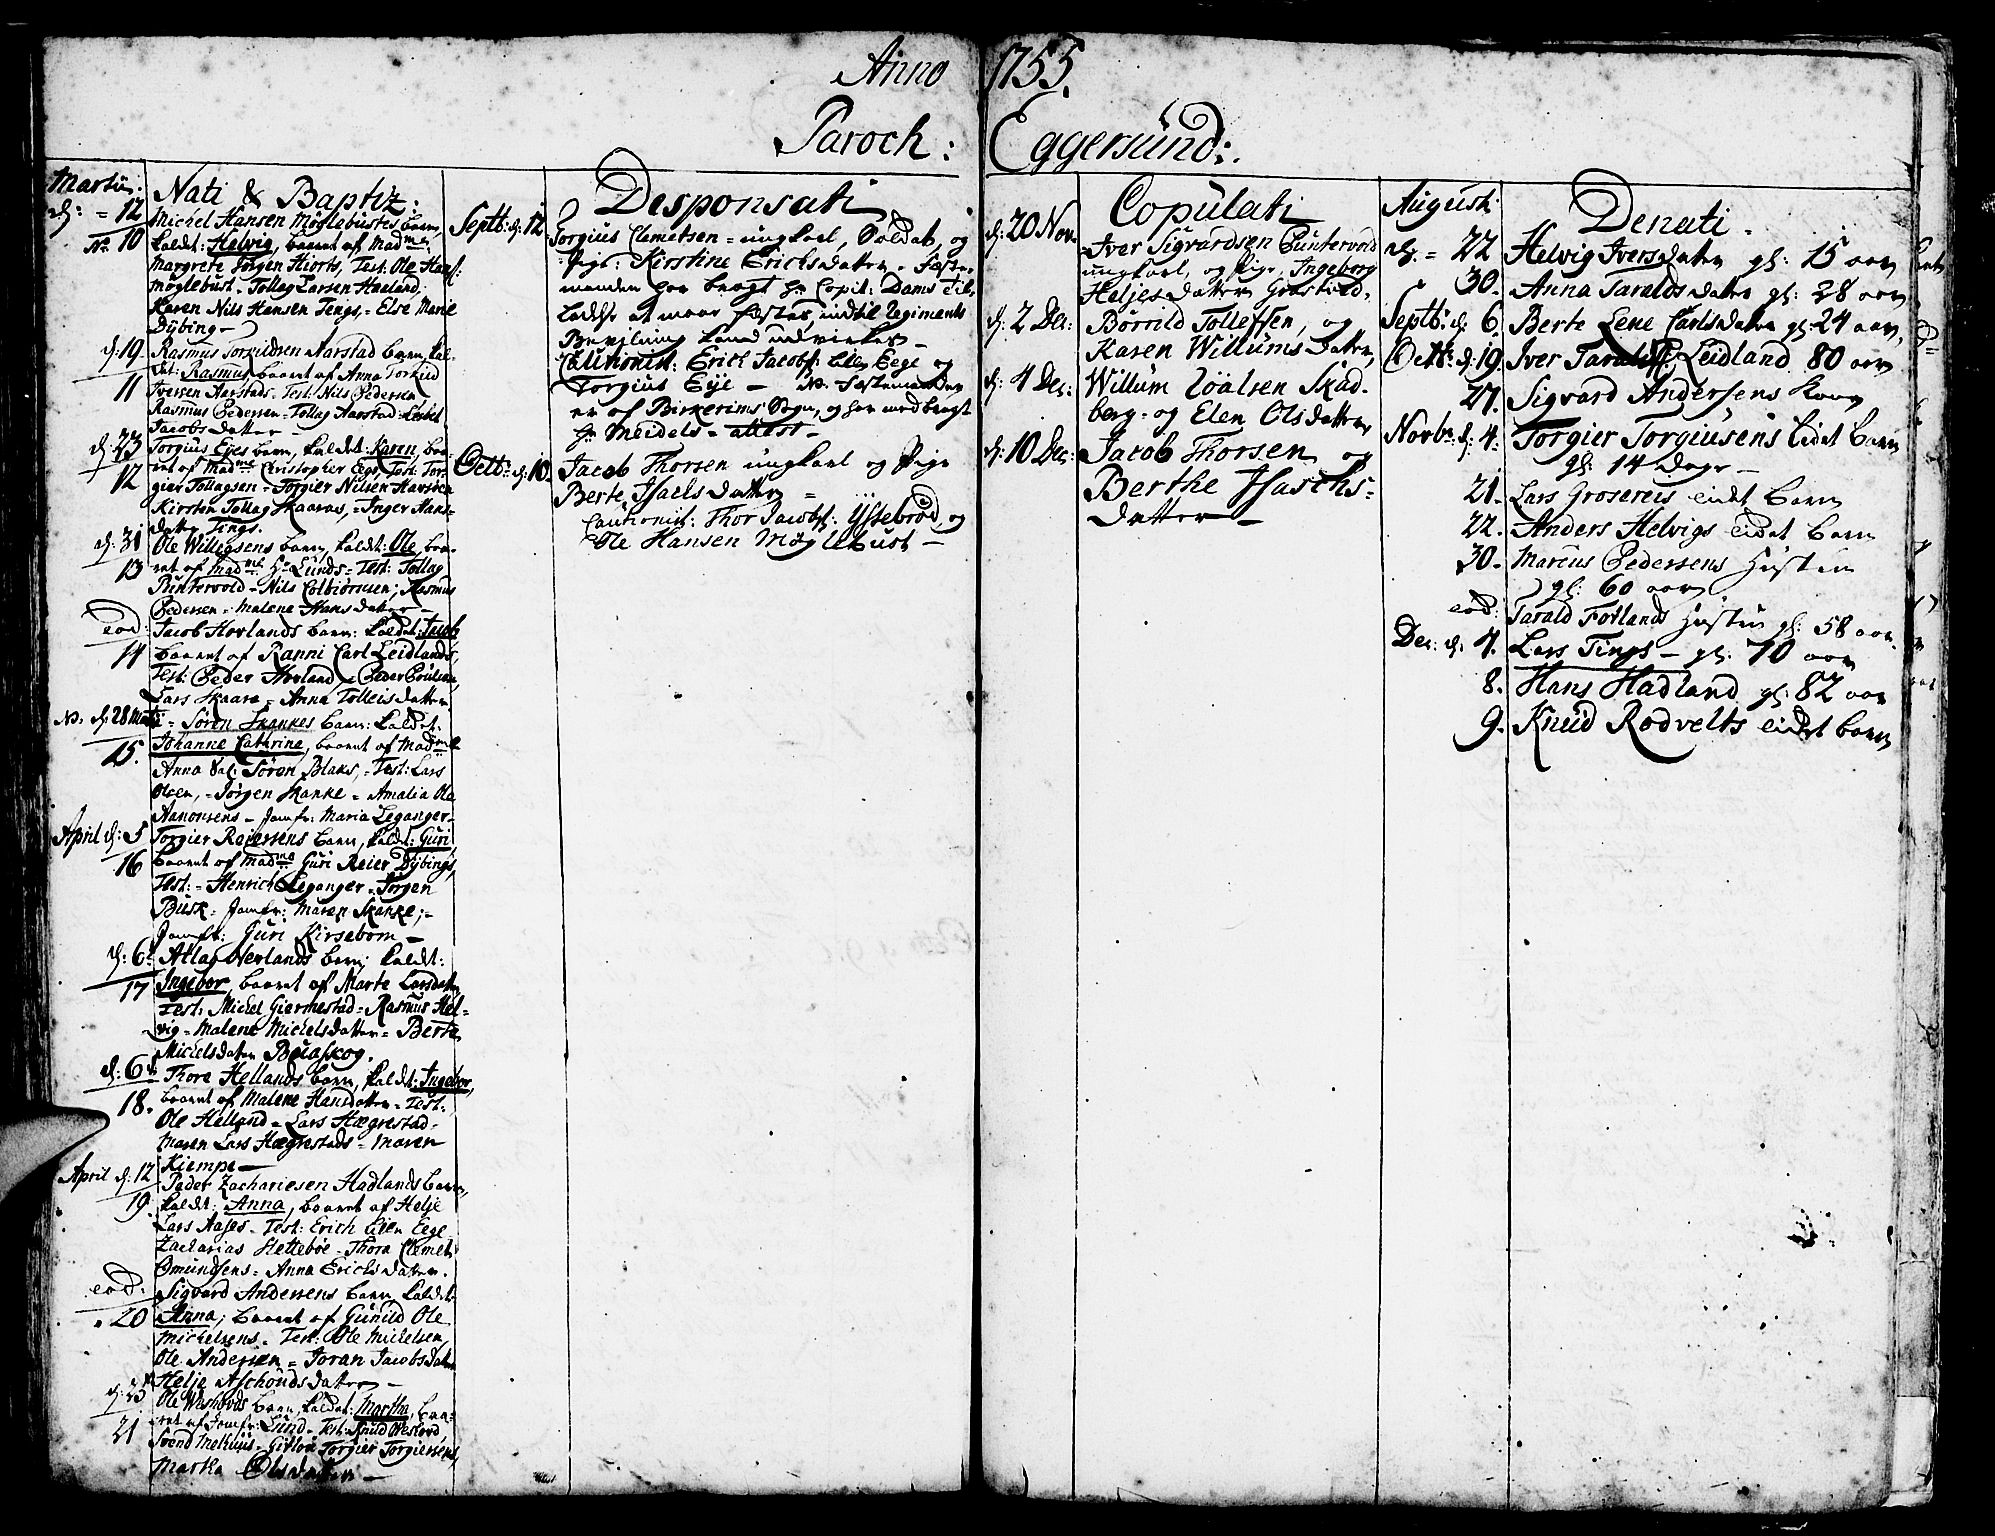 Anno 1755.
Paroch: Eggersund:.
Martii.
Nati & Baptiz:
d: = 12
No. 10
Michel Hansen Möglebustes barn,
kaldt: Helvig, baaret af Madme
Margrete Jörgen Hiorts, Test: Ole Hans:
Möglebust - Tollag Larsen Haaland;
Karen Nils Hansen Tengs, - Else Marie
Dybing -
d: 19
11
Rasmus Torkildsen Aarstad barn, kal-
det: Rasmus, baaret af Anna Torkild
Iversen Aarstads - Test: Nils Pedersen
Rasmus Pedersen - Tollag Aarstad -
Jacobs datter -
d: 23
12
Torgius Eyes barn, kaldet: Karen, baa-
ret af Madme Christopher Ege, Test: Tor-
gier Tollagsen - Torgier Nilsen
Kirsten Tollag Skaaras, - Inger Hans-
datter Tengs.
d: 31
13
Ole Willugsens barn, kaldt: Ole, baa-
ret af Madme Hr Lunds - Test: Tollag
Puntervold - Nils Colbiörnsen; Rasmus
Pedersen - Malene Hansdatter -
eod:
14
Jacob Hovlands barn: kaldet: Jacob
baaret af Ranni Carl Leidlands,
Test: Peder Hovland, - Peder Poulsen,
Lars Skaara - Anna Tolleisdatter
No. d. 28 Martii
15.
= Sören Skankes barn: kaldt:
Johanne Cathrine, baaret af Madme
Anna Sal: Sören Blaks, - Test: Lars
Olsen, - Jörgen Skanke - Amalia Ole
Aanonsens - Jomfr: Maria Leganger -
April d: 5
16
Torgier Reiersens barn, kaldt: Guri,
baaret af Madme Guri Reier Dybings,
Test: - Henrich Leganger - Jörgen
Busk - Jomfr: Maren Skanke; -
Jomfr: Guri Kirsebom -
d: 6t
17
Atlag Nerlands barn; kaldt:
Ingebor, baaret af Marte Larsdatter
Test: Michel Giermestad - Rasmus Hel-
vig - Malene Michelsdatter - Berte
Michelsdatter Puaskog.
d: 6t
18.
Thore Hellands barn, kaldt: Ingebor,
baaret af Malene Hansdatter - Test:
Ole Helland - Lars Hægrestad -
Maren Lars Hægrestads - Maren
Kiempe -
April d: 12
19.
Peder Zachariesen Hadlands barn,
kaldt: Anna, baaret af Helje
Lars Aases - Test: Erich Elen Eege
Zacharias Slettebøe - Thora Clemet
Omundsens - Anna Erichsdatter.
eod:
20
Sigvard Andersens barn, kaldet:
Anna; baaret af Gunild Ole
Michelsens - Test: Ole Michelsen
Ole Andersen - Joran Jacobsdatter
Helje Aschoudsdatter -
d: 23
21
Ole barn, kaldet: Martha, baa-
ret af Jomfr: Lund - Test: Knud
Svend - Torgier Torgiersens,
Marta Olsdatter -
Desponsati
Septb: d: 12.
Torgius Clemetsen - ungkarl, Soldat, og
Pige: Kirstine Erichsdatter - Fæste-
manden har bragt Hr Capit: Dams til-
ladelse at maae fæstes indtil Regiments
Bevilning kand udvirkes -
Cautionist: Erich Jacobs: Elen Eege og
Torgius Eye - NB. Fæstemanden
er af Birkerims Sogn, og har medbragt
Hr Meidels - attest -
Octbr: d: 10.
Jacob Thorsen ungkarl og Pige
Berte Isaelsdatter =
Cautionist: Thor Jacobs: Ystebröd, og
Ole Hansen Möglebust -
Copulati
d: 20 Nov.
Iver Sigvardsen Puntervold
ungkarl, og Pige, Ingeborg
Heljesdatter
d: 2 Dec:
Börrild Tollefsen, og
Karen Willumsdatter,
d: 4 Dec:
Willum Skad-
berg - og Elen Olsdatter
d: 10 Dec:
Jacob Thorsen og
Berthe Isachs-
datter -
Denati.
August:
d: = 22
Helvig Iversdatter gl: 15 aar
30.
Anna Taraldsdatter gl: 28 aar
Septb: d: 6.
Berte Lene Carlsdatter gl: 24 aar,
Octbr: d: 19.
Iver Leidland 80 aar
27.
Sigvard Andersens
Novbr: d: 4.
Torgier Torgiusens lidet barn
gl: 14 dage -
21.
Lars lidet barn
22.
Anders Helvigs lidet barn
30.
Marcus Pedersens Hustru
gl: 60 aar
eod:
Tarald Förlands Hustru gl: 58 aar.
Dec: d: 7.
Lars Tings - gl: 70 aar
8.
Hans Hadland gl: 82 aar
9.
Knud Rodvelts lidet barn